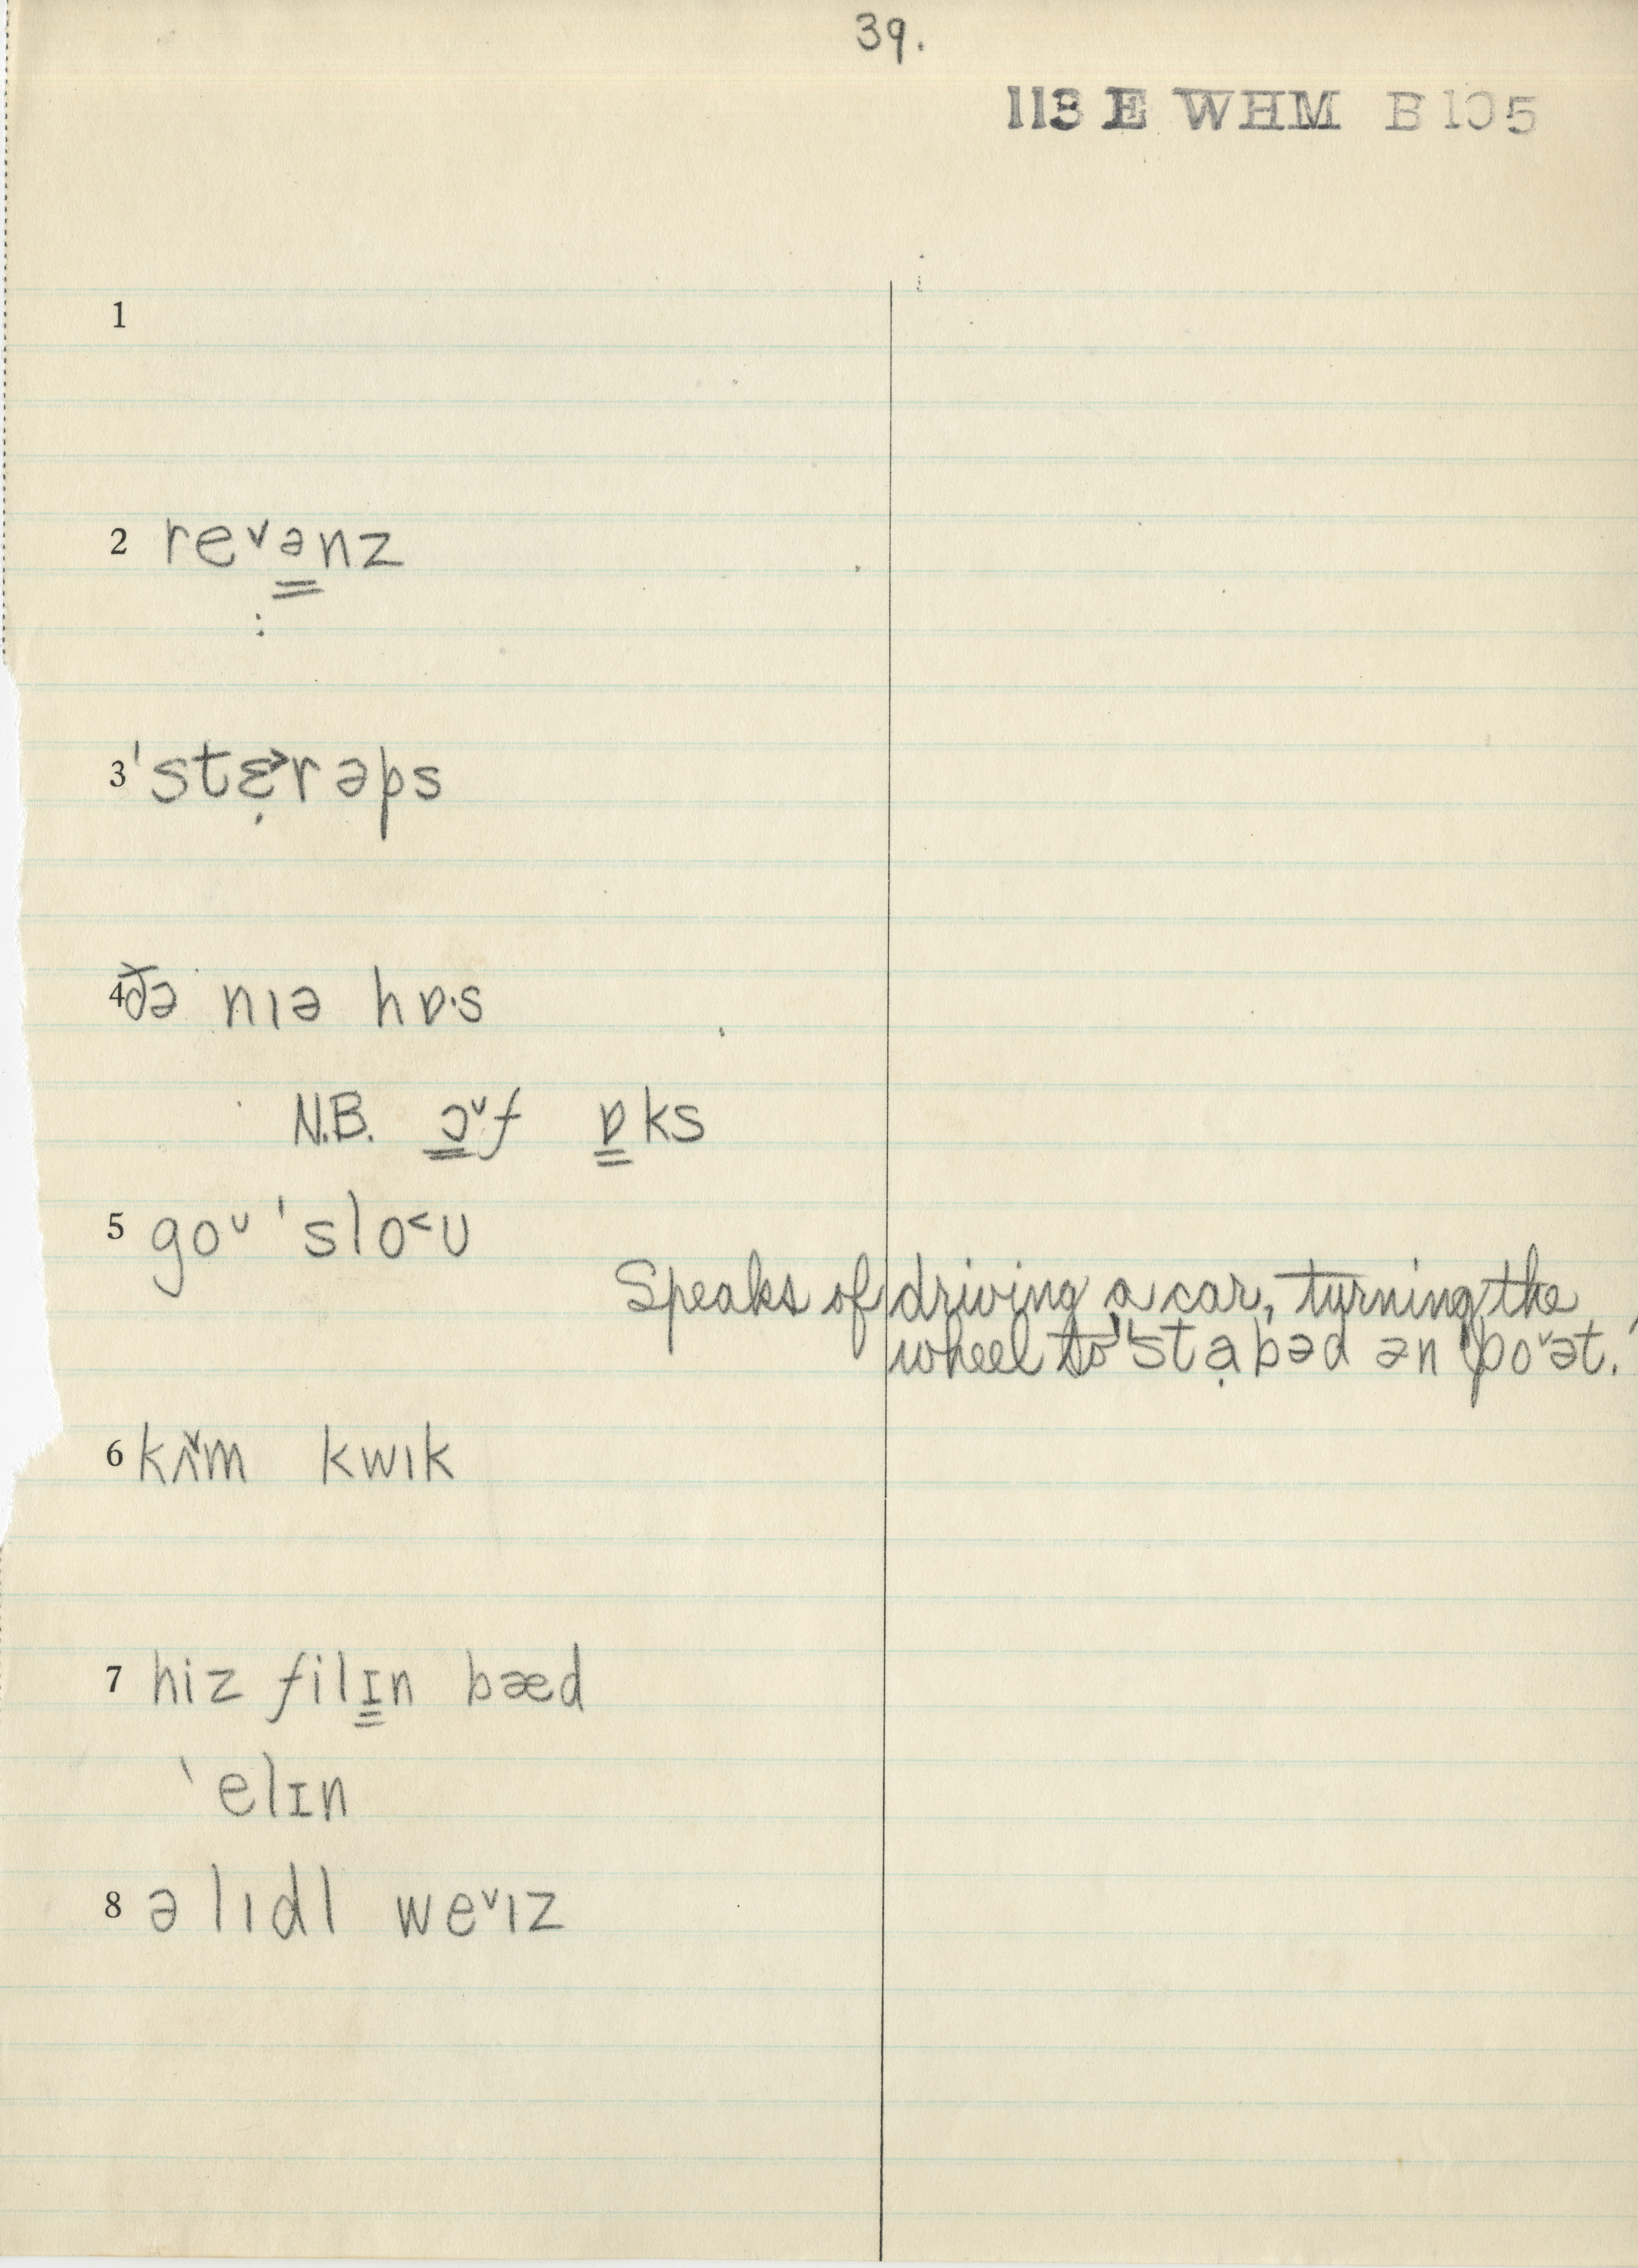 39.
113 E WHM B 105
1
2 re˅ə̳nz
3 ˈstɛ̣˃rəps
4 ðə nɪə hɒ·s
N.B. ɔ̳˅f ɒ̳ks
5 goᴜ ˈslo˂ᴜ
Speaks of driving a car, turning the
wheel to "ˈstạbəd ən ˈpo˅ət."
6 kʌ˅m kwɪk
7 hiz filɪ̳n bæd
ˋelɪn
8 ə lɪdl we˅ɪz